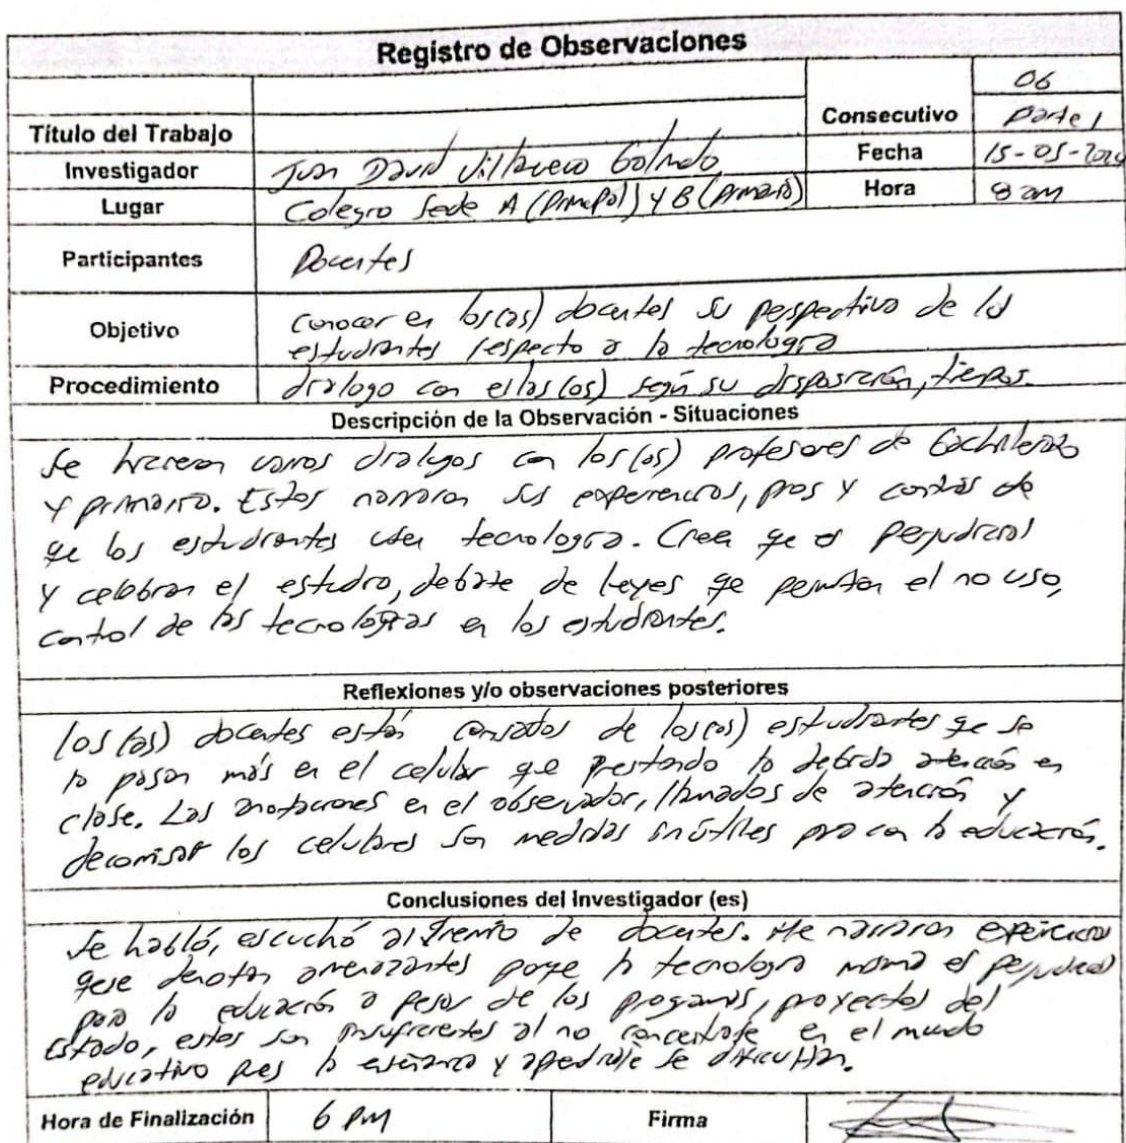 Registro de Observaciones
06
Título del Trabajo
Consecutivo
Parte 1
Investigador
Juan David Villaveco Galindo
Fecha
15-05-2024
Lugar
Colegio Sede A (Principal) y B (Primaria)
Hora
8 am
Participantes
Docentes
Objetivo
Conocer en los(as) docentes su perspectiva de los
estudiantes respecto a la tecnología
Procedimiento
dialogo con ellas(os) según su disposición, tiempos.
Descripción de la Observación - Situaciones
Se hicieron varios dialogos con los(as) profesores de bachillerato
y primaria. Estos narraron sus experiencias, pros y contras de
que los estudiantes usen tecnología. Creen que es perjudicial
y celebran el estudio, debate de leyes que permitan el no uso,
control de las tecnologías en los estudiantes.
Reflexiones y/o observaciones posteriores
los (as) docentes están cansados de los(as) estudiantes que se
la pasan más en el celular que prestando la debida atención en
clase. Las anotaciones en el observador, llamados de atención y
decomisar los celulares son medidas inútiles pro con la educación.
Conclusiones del Investigador (es)
Se habló, escuchó al gremio de docentes. Me narraron experiencias
que se denotan amenazantes porque la tecnología misma es perjudicial
para la educación a pesar de los programas, proyectos del
Estado, estos son insuficientes al no concentrarse en el mundo
educativo pues la enseñanza y aprendizaje se dificultan.
Hora de Finalización
6 PM
Firma